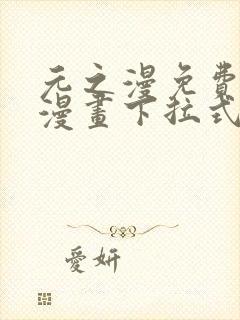 元之漫免費
漫畫下拉式
愛妍